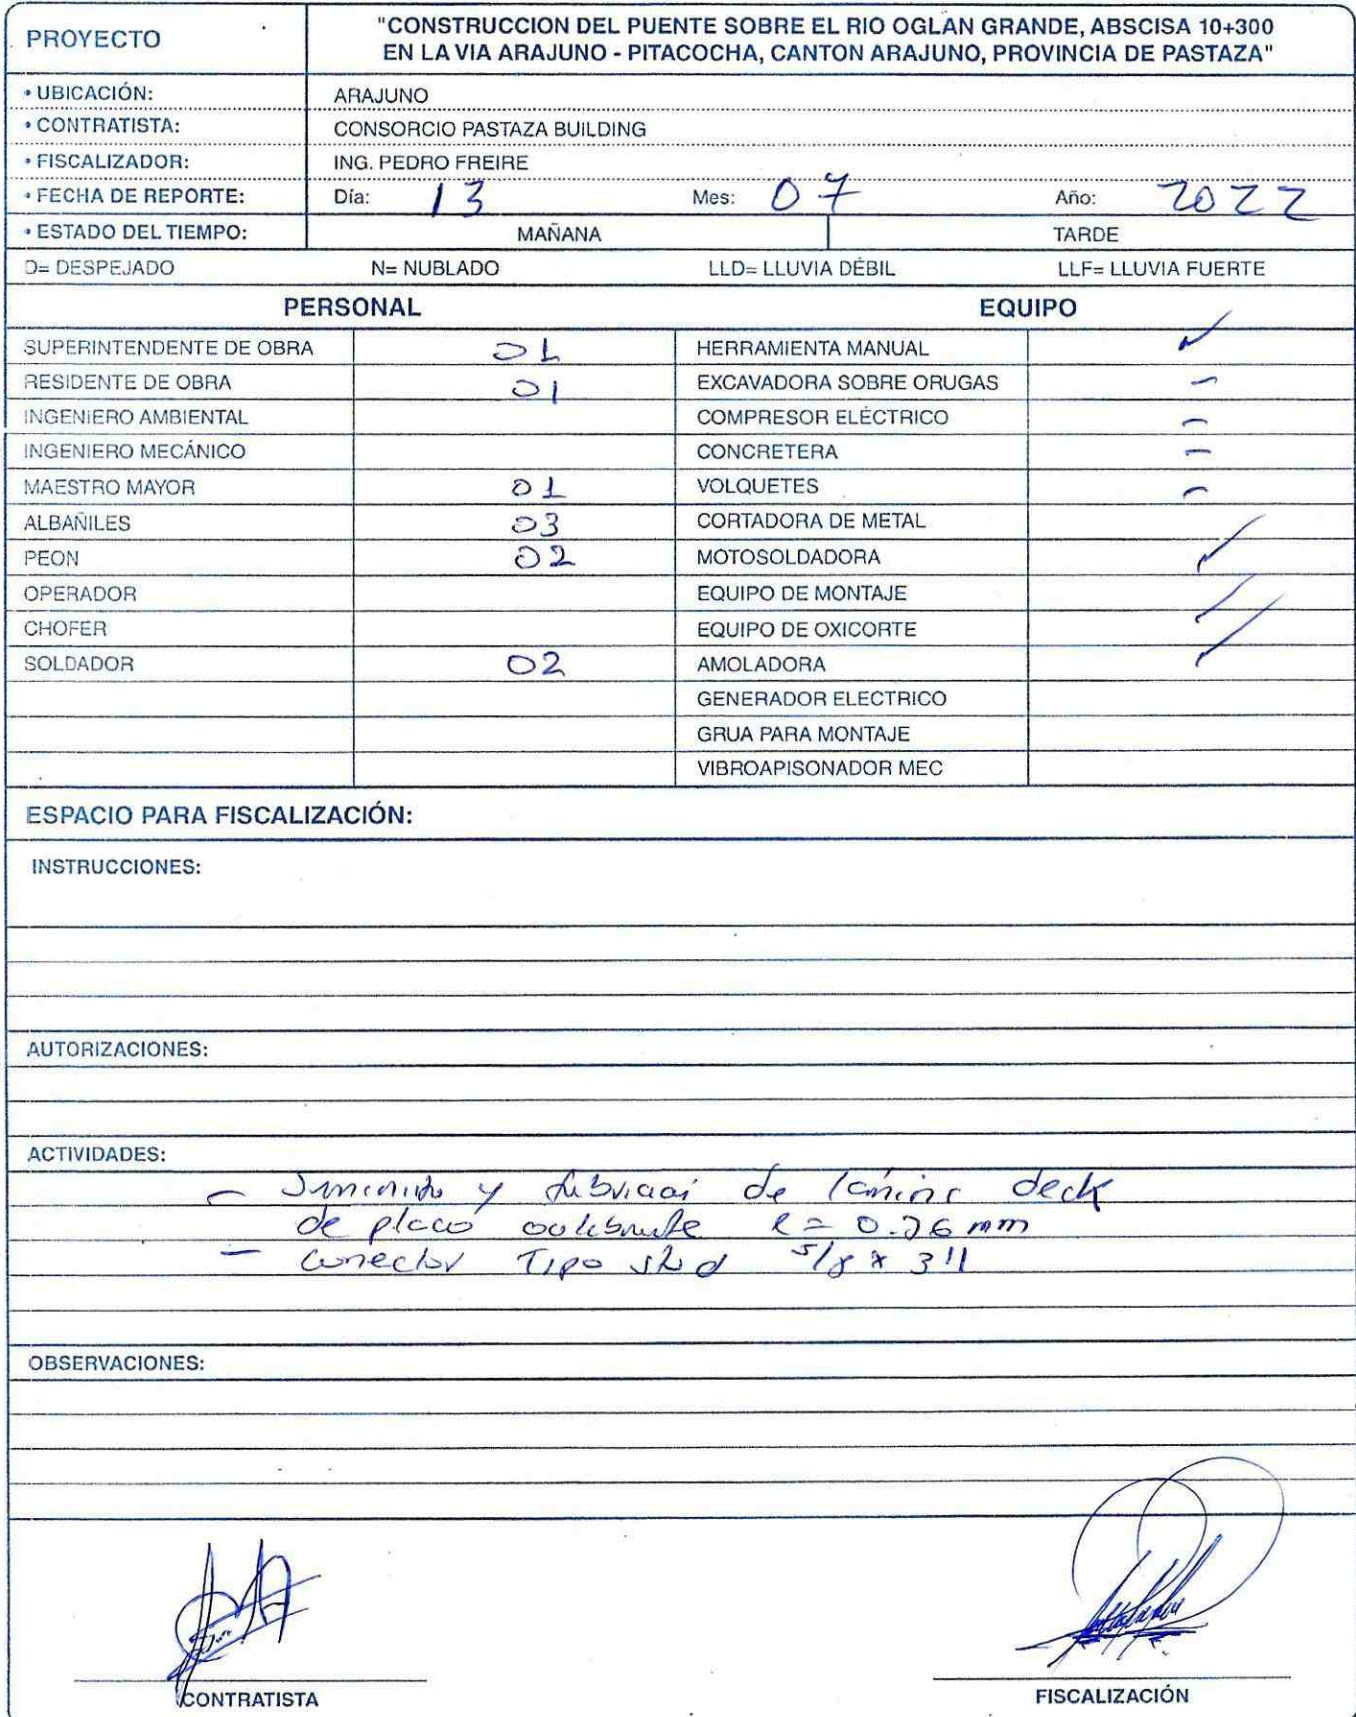 PROYECTO
"CONSTRUCCION DEL PUENTE SOBRE EL RIO OGLAN GRANDE, ABSCISA 10+300
EN LA VIA ARAJUNO - PITACOCHA, CANTON ARAJUNO, PROVINCIA DE PASTAZA"
• UBICACIÓN: ARAJUNO
• CONTRATISTA: CONSORCIO PASTAZA BUILDING
• FISCALIZADOR: ING. PEDRO FREIRE
• FECHA DE REPORTE: Día: 13 Mes: 07 Año: 2022
• ESTADO DEL TIEMPO: MAÑANA TARDE
D= DESPEJADO N= NUBLADO LLD= LLUVIA DÉBIL LLF= LLUVIA FUERTE
PERSONAL EQUIPO
SUPERINTENDENTE DE OBRA 01 HERRAMIENTA MANUAL ✓
RESIDENTE DE OBRA 01 EXCAVADORA SOBRE ORUGAS -
INGENIERO AMBIENTAL COMPRESOR ELÉCTRICO -
INGENIERO MECÁNICO CONCRETERA -
MAESTRO MAYOR 01 VOLQUETES -
ALBAÑILES 03 CORTADORA DE METAL
PEON 02 MOTOSOLDADORA ✓
OPERADOR EQUIPO DE MONTAJE ✓
CHOFER EQUIPO DE OXICORTE
SOLDADOR 02 AMOLADORA ✓
GENERADOR ELECTRICO
GRUA PARA MONTAJE
VIBROAPISONADOR MEC
ESPACIO PARA FISCALIZACIÓN:
INSTRUCCIONES:
AUTORIZACIONES:
ACTIVIDADES:
- y de deck
de placa e = 0.76 mm
- conector Tipo stud 5/8 x 3"
OBSERVACIONES:
CONTRATISTA
FISCALIZACIÓN